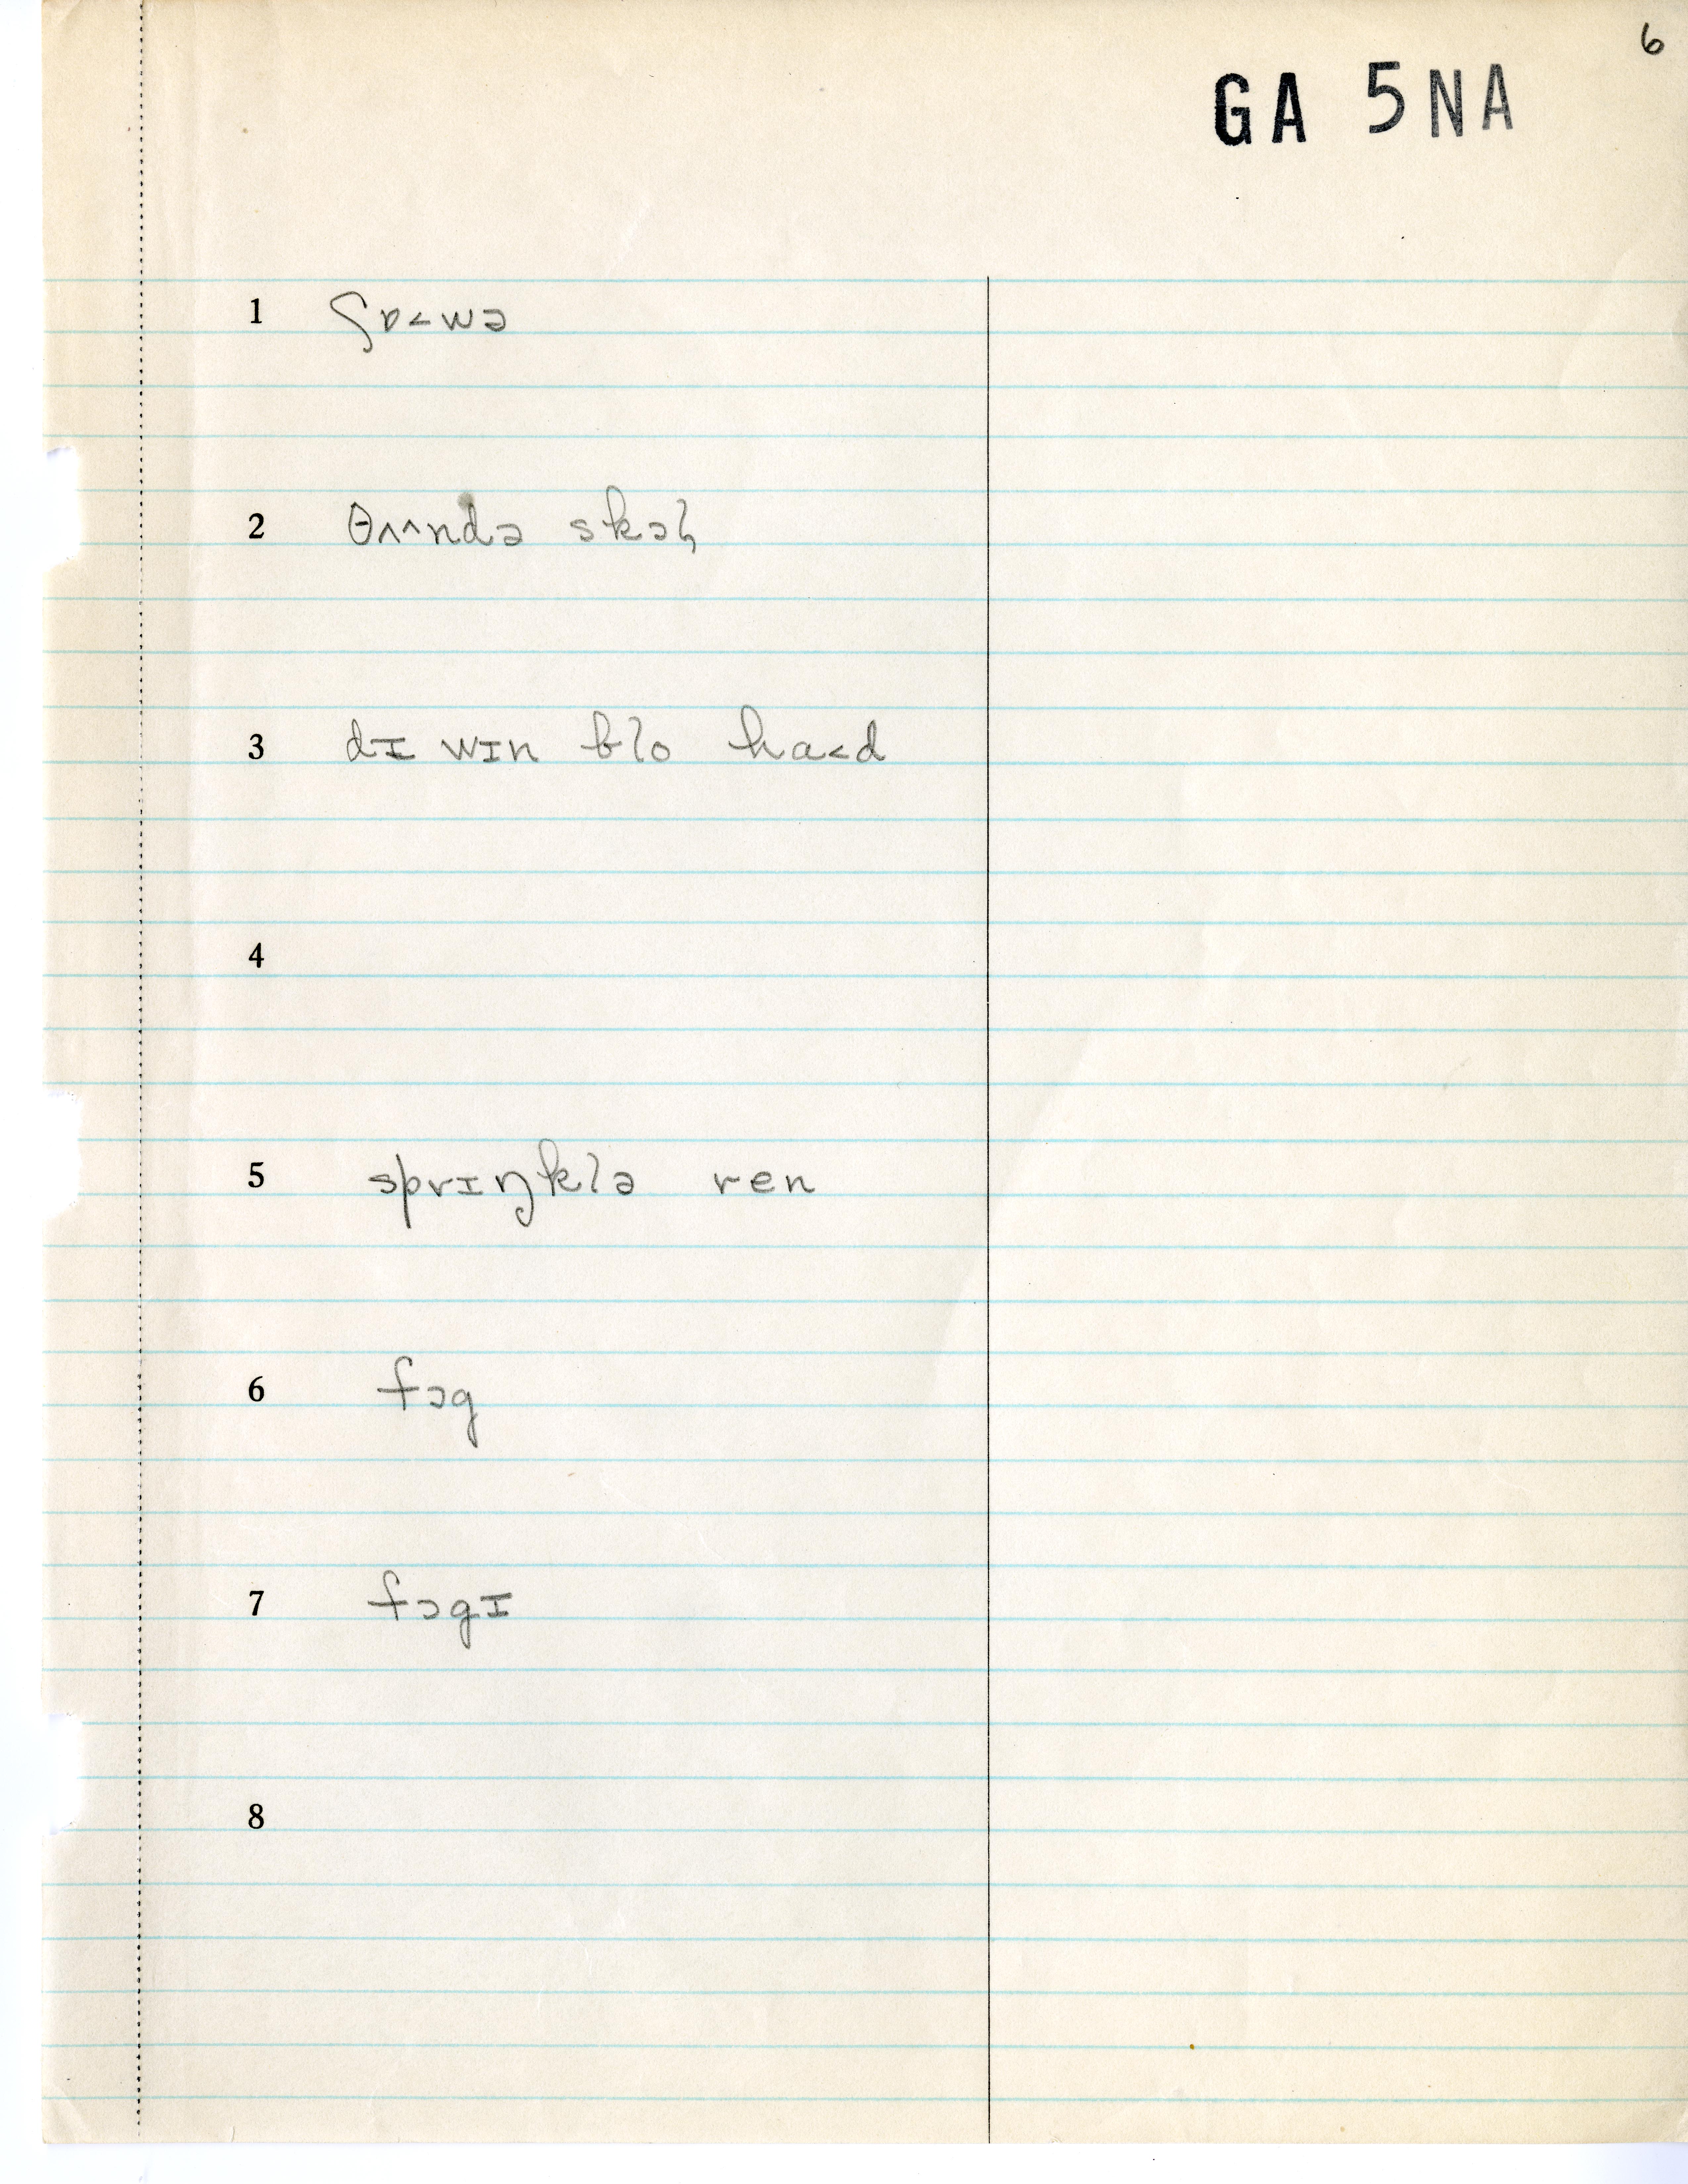 6
GA 5NA
1 ʃɒ˂wə
2 θʌ^ndə
3 dɪ wɪn blo ha˂d
4
5 sprɪŋklə ren
6 fɔg
7 fɔgɪ
8